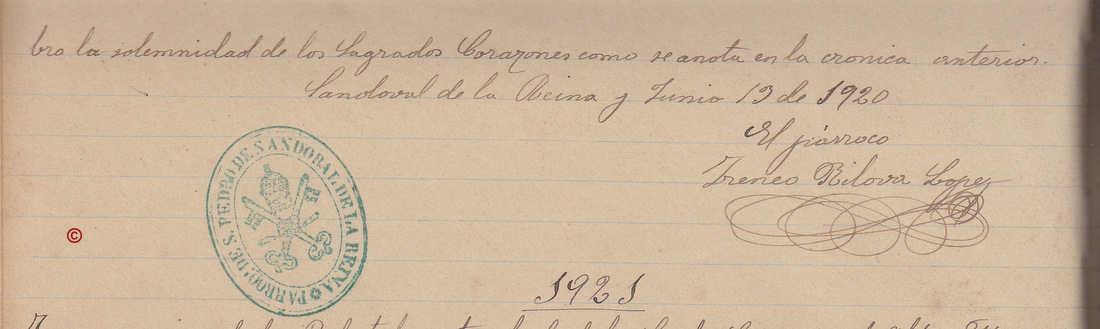 bro la solemnidad de los Sagrados Corazones como se anota en la cronica anterior.
Sandoval de la Reina y Junio 13 de 1920
El párroco
Ireneo Rilova Lopez
PARROQ. DE S. PEDRO DE SANDOBAL DE LA REINA
©
1921